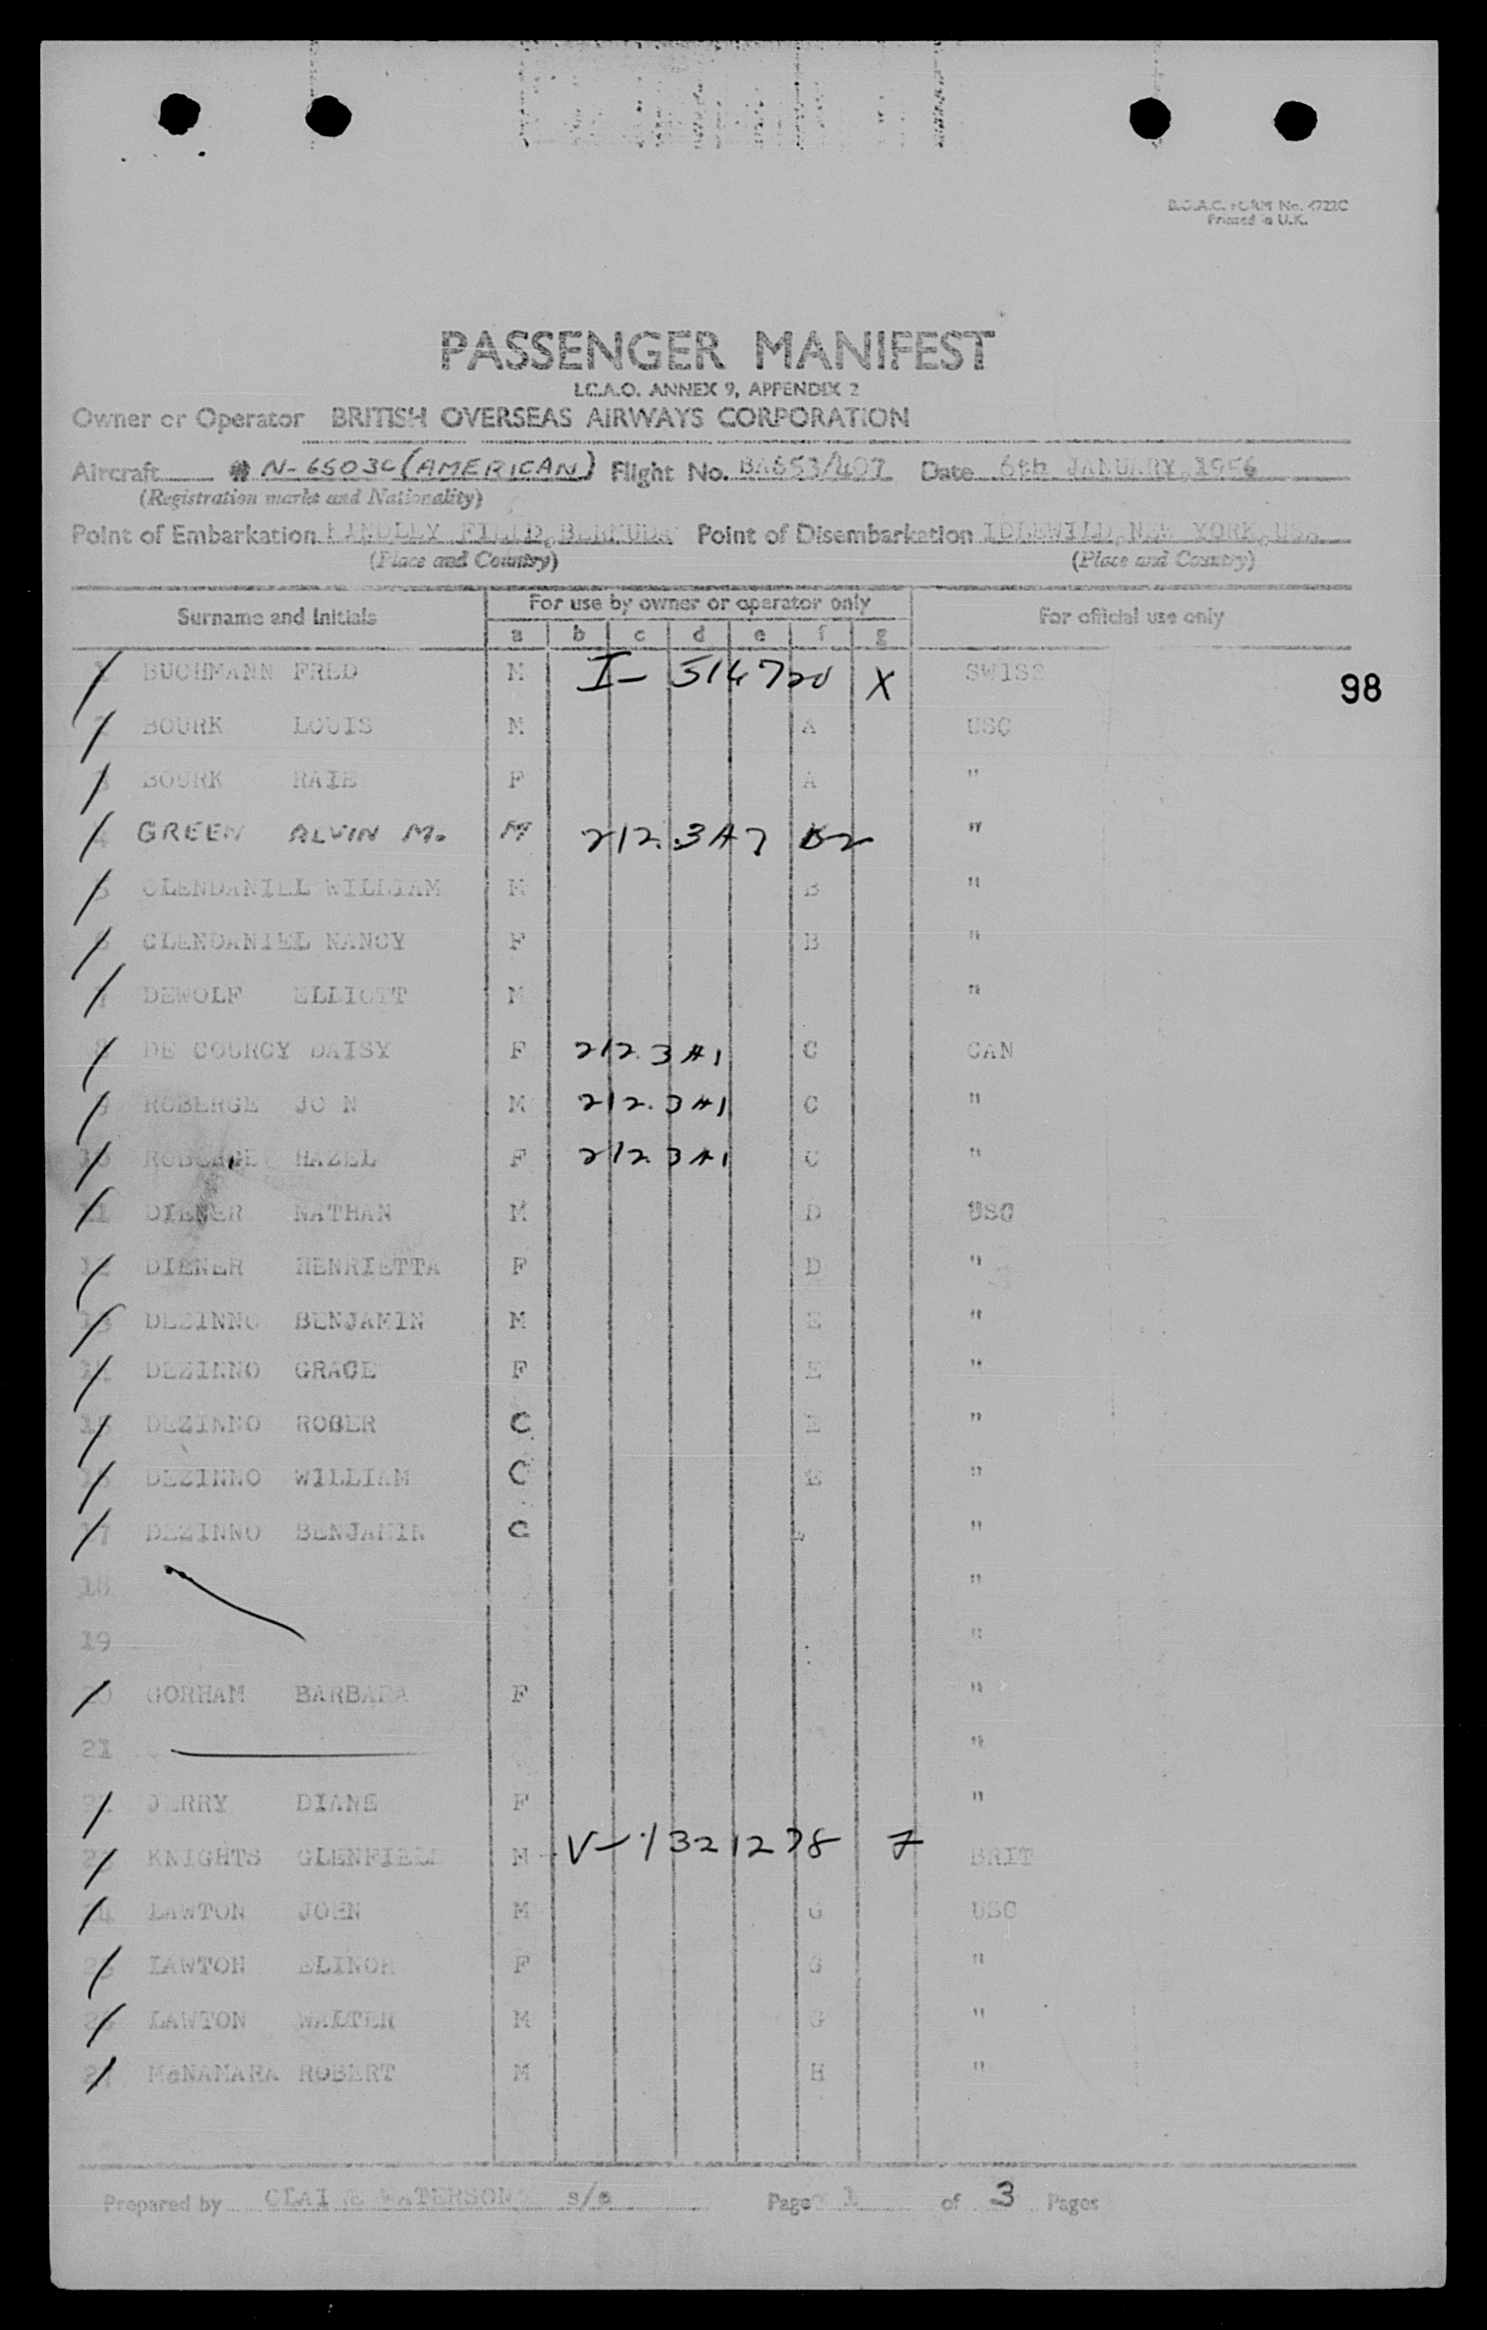 B.O.A.C. FORM No. 4722C
Printed in U.K.
PASSENGER MANIFEST
I.C.A.O. ANNEX 9, APPENDIX 2
Owner or Operator BRITISH OVERSEAS AIRWAYS CORPORATION
Aircraft N-6503C (AMERICAN) Flight No. BA653/407 Date 6th JANUARY, 1956
(Registration marks and Nationality)
Point of Embarkation KINDLEY FIELD, BERMUDA Point of Disembarkation IDLEWILD, NEW YORK, USA
(Place and Country) (Place and Country)
Surname and Initials For use by owner or operator only For official use only
a b c d e f g
1 BUCHMANN FRED M I- 514720 X SWISS
98
2 BOURK LOUIS M A USC
3 BOURK RAIE F A "
4 GREEN ALVIN M. M 212.3A7 "
5 CLENDANIEL WILLIAM M B "
6 CLENDANIEL NANCY F B "
7 DEWOLF ELLIOTT M "
8 DE COURCY DAISY F 212.3A1 C CAN
9 ROBERGE JO N M 212.3A1 C "
10 ROBERGE HAZEL F 212.3A1 C "
11 DIENER NATHAN M D USC
12 DIENER HENRIETTA F D "
13 DEZINNO BENJAMIN M E "
14 DEZINNO GRACE F E "
15 DEZINNO ROBER C E "
16 DEZINNO WILLIAM C E "
17 DEZINNO BENJAMIN C "
18 "
19 "
20 GORHAM BARBARA F "
21 "
22 JERRY DIANE F "
23 KNIGHTS GLENFIELD M V-1321278 7 BRIT
24 LAWTON JOHN M G USC
25 LAWTON ELINOR F G "
26 LAWTON WALTER M G "
27 McNAMARA ROBERT M H "
Prepared by WATERSON s/s Page 1 of 3 Pages